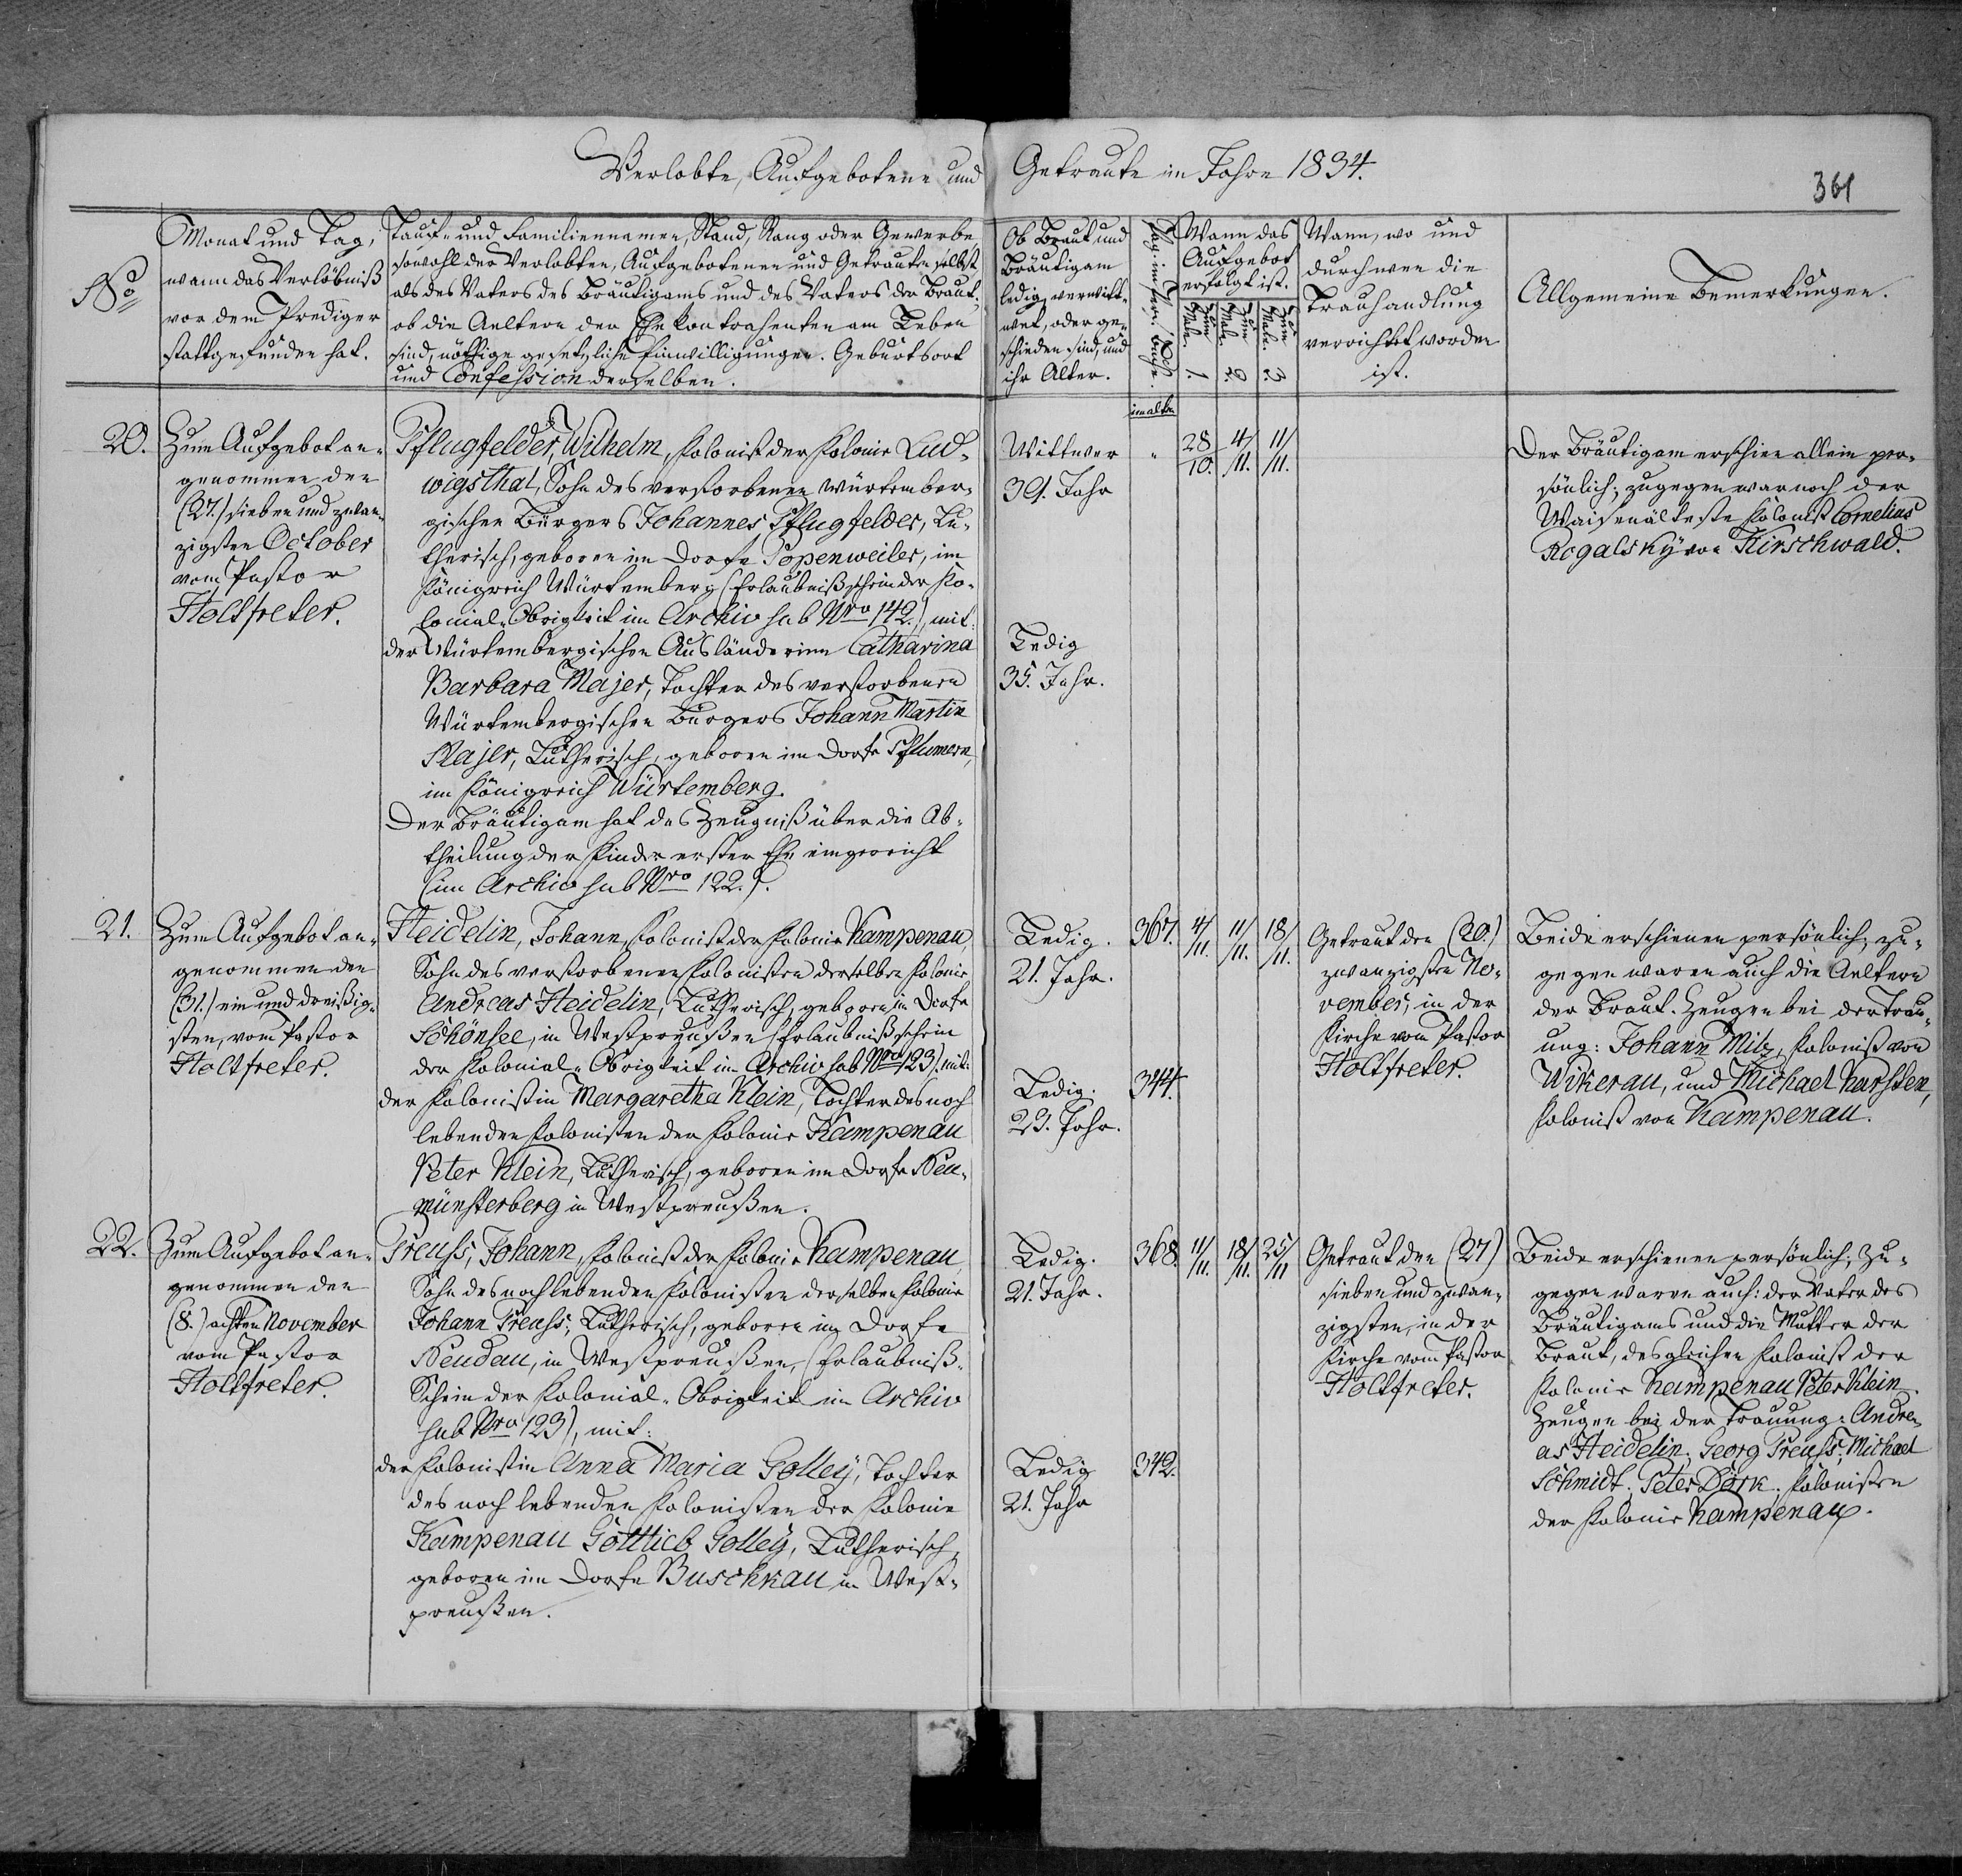 Verlobte, Aufgebotene und Getraute im Jahre 1834.
361
No
Monat und Tag,
wann das Verlöbniß
vor dem Prediger
stattgefunden hat.
Tauf- und Familiennamen, Stand, Rang oder Gewerbe,
sowohl der Verlobten, Aufgebotenen und Getrauten selbst,
als des Vaters des Bräutigams und des Vaters der Braut,
ob die Aeltern der Ehekontrahenten am Leben
sind, nöthige gesetzliche Einwilligungen. Geburtsort
und Confession derselben.
Ob Braut und
Bräutigam
ledig, verwitt-
wet, oder ge-
schieden sind, und
ihr Alter.
Wann das
Aufgebot
erfolgt ist.
Zum 1. Male.
Zum 2. Male.
Zum 3. Male.
Wann, wo und
durch wen die
Trauhandlung
verrichtet worden
ist.
Allgemeine Bemerkungen.
im alten
20.
Zum Aufgebot an-
genommen den
(27.) sieben und zwan-
zigsten October
vom Pastor
Holtfreter.
Pflugfelder, Wilhelm, Kolonist der Kolonie Lud-
wigsthal, Sohn des verstorbenen Würtember-
gischen Bürgers Johannes Pflugfelder, Lu-
therisch, geboren im Dorfe Popenweiler, im
Königreich Würtemberg (Erlaubnißschein der Ko-
lonial-Obrigkeit im Archiv sub Nro 142.), mit:
der Würtembergischen Ausländerinn Catharina
Barbara Majer, Tochter des verstorbenen
Würtembergischen Bürgers Johann Martin
Majer, Lutherisch, geboren im Dorfe Pflumern,
im Königreich Würtemberg.
Der Bräutigam hat das Zeugniß über die Ab-
theilung der Kinder erster Ehe eingereicht
(im Archiv sub Nro 122.).
Wittwer
39. Jahr
"
28/10.
4/11.
11/11.
Ledig
35. Jahr.
Der Bräutigam erschien allein per-
sönlich; zugegen war noch der
Waisenälteste Kolonist Cornelius
Rogalsky von Kirschwald.
21.
Zum Aufgebot an-
genommen den
(31.) ein und dreißig-
sten, vom Pastor
Holtfreter.
Heidelin, Johann, Kolonist der Kolonie Kampenau,
Sohn des verstorbenen Kolonisten derselben Kolonie
Andreas Heidelin, Lutherisch, geboren im Dorfe
Schönsee, in Westpreußen (Erlaubnißschein
der Kolonial-Obrigkeit im Archiv sub Nro 123). mit:
der Kolonistin Margaretha Klein, Tochter des noch
lebenden Kolonisten der Kolonie Kampenau
Peter Klein, Lutherisch, geboren im Dorfe Neu-
münsterberg in Westpreußen.
Ledig.
21. Jahr.
367.
4/11.
11/11.
18/11.
Ledig.
23. Jahr.
344.
Getraut den (20.)
zwanzigsten No-
vember, in der
Kirche vom Pastor
Holtfreter.
Beide erschienen persönlich, zu-
gegen waren auch die Aeltern
der Braut. Zeugen bei der Trau-
ung: Johann Milz, Kolonist von
Wikerau, und Michael Karsten,
Kolonist von Kampenau.
22.
Zum Aufgebot an-
genommen den
(8.) achten November
vom Pastor
Holtfreter.
Preuss, Johann, Kolonist der Kolonie Kampenau,
Sohn des noch lebenden Kolonisten derselben Kolonie
Johann Preuss, Lutherisch, geboren im Dorfe
Neudau, in Westpreußen, (Erlaubniß-
Schein der Kolonial-Obrigkeit im Archiv
sub Nro 123), mit:
der Kolonistin Anna Maria Golley, Tochter
des noch lebenden Kolonisten der Kolonie
Kampenau Gottlieb Golley, Lutherisch,
geboren im Dorfe Buschkau in West-
preußen.
Ledig.
21. Jahr.
368.
11/11.
18/11.
25/11
Ledig
21. Jahr
342.
Getraut den (27)
sieben und zwan-
zigsten, in der
Kirche vom Pastor
Holtfreter.
Beide erschienen persönlich; Zu-
gegen waren auch: der Vater des
Bräutigams und die Mutter der
Braut, desgleichen Kolonist der
Kolonie Kampenau Peter Klein.
Zeugen bei der Trauung: Andre-
as Heidelin, Georg Preuss, Michael
Schmidt, Peter Dörk. Kolonisten
der Kolonie Kampenau.